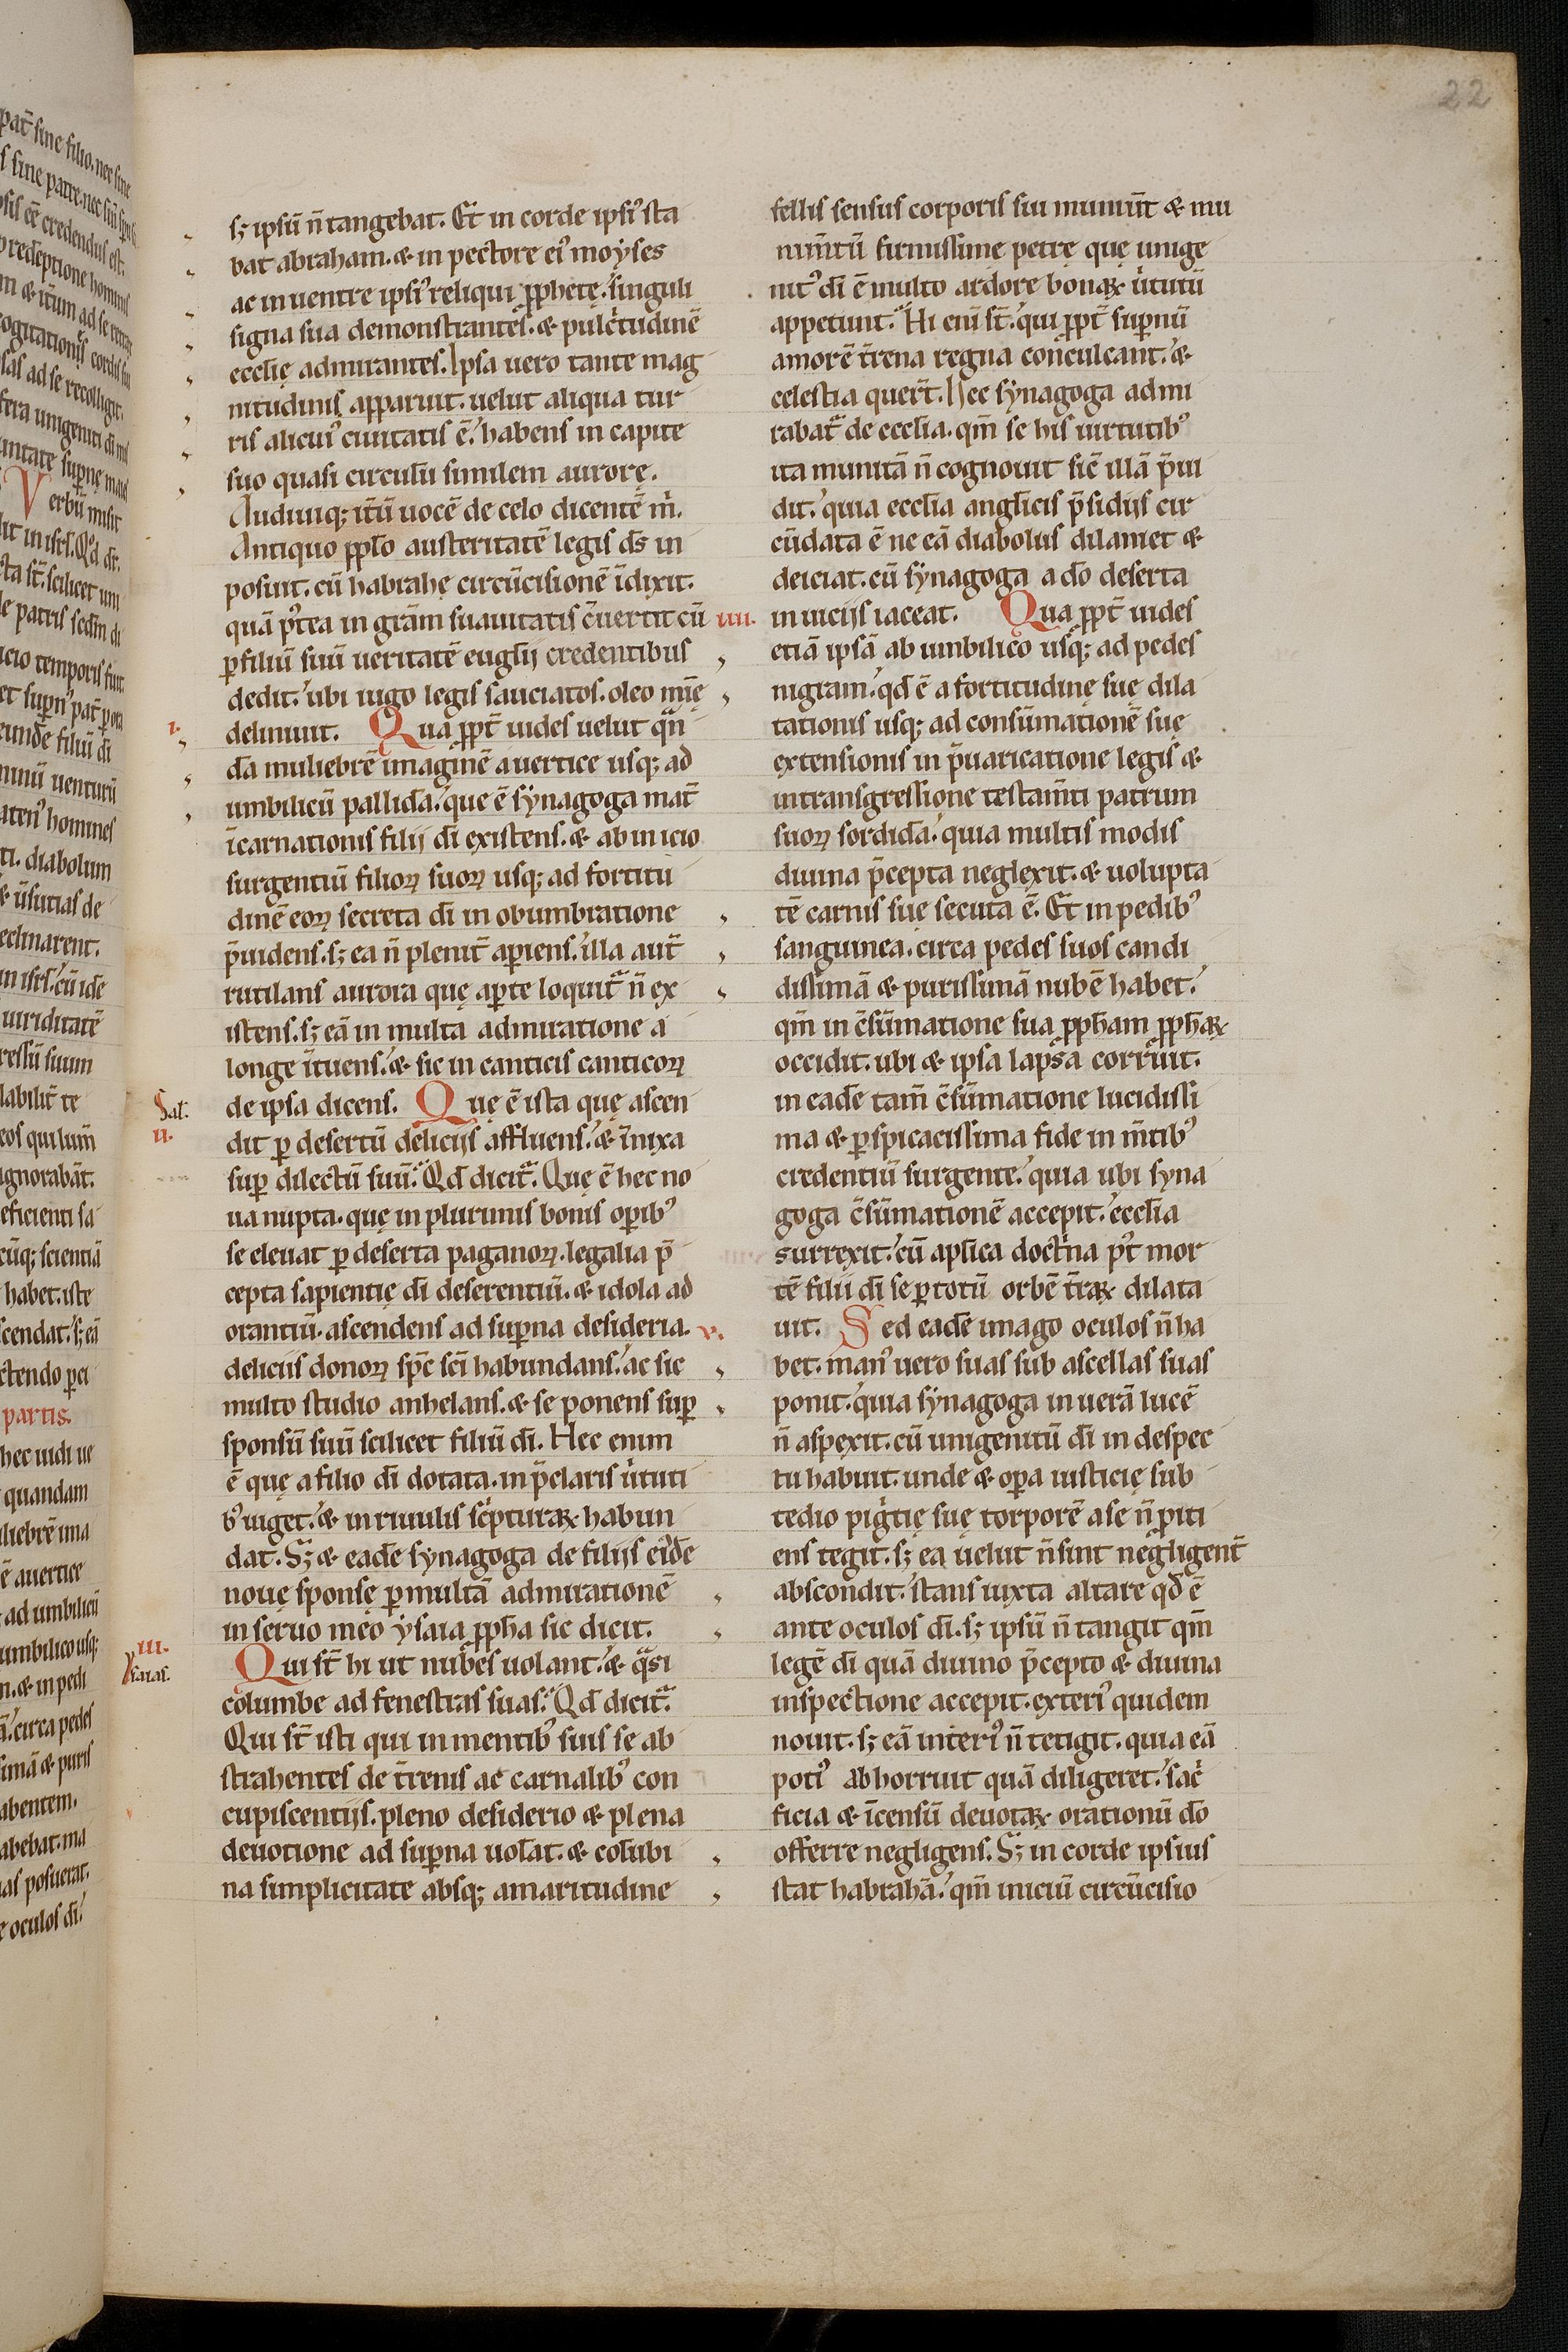 22
sꝫ ipsū n̄ tangebat. Et in corde ipsiꝰ sta
bat abraham. & in pectore eiꝰ moyses
ac in uentre ipsiꝰ reliqui ꝓphetę. singuli
signa sua demonstrantes. & pulc̓tudinē
ecclię admirantes. Ipsa uero tante mag
nitudinis apparuit. uelut aliqua tur
ris alicuiꝰ ciuitatis ē. habens in capite
suo quasi circulū similem aurorę.
Audiuiqꝫ it̄ū uocē de celo dicentē m̓.
Antiquo ppło austeritatē legis ds̄ in
posuit. cū habrahę circūcisionē īdixit.
quā p̓tea in gr̄am suauitatis c̄uertit cū
ꝑ filiū suū ueritatē euglij credentibus
dedit. ubi iugo legis sauciatos. oleo mīę
deliniuit. Qua ꝓpt̄ uides uelut qͣn
dā muliebrē imaginē a uertice usqꝫ ad
umbilicū pallidā. que ē synagoga mat̄
īcarnationis filij dī existens. & ab inicio
surgentiū filioꝝ suoꝝ usqꝫ ad fortitu
dinē eoꝝ secreta dī in obumbratione
p̄uidens. sꝫ ea n̄ plenit̄ aꝑiens. illa aut̄
rutilans aurora quę aꝑte loquit̄ n̄ ex
istens. sꝫ eā in multa admiratione a
longe ītuens. & sic in canticis canticoꝝ
Sal. de ipsa dicens. Quę ē ista quę ascen
ii. dit ꝑ desertū delicijs affluens. & īnixa
suꝑ dilectū suū. Qđ dicit̄. Quę ē hec no
ua nupta. quę in plurimis bonis oꝑibꝰ
se eleuat ꝑ deserta paganoꝝ. legalia p̄
cepta sapientię dī deserentiū. & idola ad
orantiū. ascendens ad suꝑna desideria.
deliciis donoꝝ spc̄ sc̄i habundans. ac sic
multo studio anhelans. & se ponens suꝑ
sponsū suū scilicet filiū dī. Hec enim
ē quę a filio dī dotata. in p̄claris ùtuti
bꝰ uiget. & in riuulis sc̓pturaꝝ habun
dat. Sꝫ & eadē synagoga de filijs eiꝰdē
nouę sponsę ꝑ multā admirationē
in seruo meo ysaia ꝓpha sic dicit.
iii. Qui st̄ hi ut nubes uolant. & qͣsi
ysaias. columbe ad fenestras suas. Qđ dicit̄.
Qui st̄ isti qui in mentibꝰ suis se ab
strahentes de t̄renis ac carnalibꝰ con
cupiscentijs. pleno desiderio & plena
deuotione ad suꝑna uolāt. & colūbi
na simplicitate absqꝫ amaritudine
fellis sensus corporis sui muniūt & mu
nim̄tū firmissime petrę que unige
nitꝰ dī ē multo ardore bonaꝝ ùtutū
appetunt. Hi eni st̄. qui ꝓpt̄ suꝑnū
amorē t̄rena regna conculcant. &
celestia quert̄. Hec synagoga admi
rabat̄ de ecclia. qm̄ se his uirtutibꝰ
ita munitā n̄ cognouit sic̄ illā p̄ui
dit. quia ecclia anglicis p̄sidijs cir
cūdata ē ne eā diabolus dilaniet &
deiciat. cū synagoga a dō deserta
iiii. in uicijs iaceat. Qua ꝓpt̄ uides
etiā ipsā ab umbilico usqꝫ ad pedes
nigram. qđ ē a fortitudine suę dila
tationis usqꝫ ad consūmationē suę
extensionis in p̄uaricatione legis &
in transgressione testam̄ti patrum
suoꝝ sordidā. quia multis modis
diuina p̄cepta neglexit. & uolupta
tē carnis suę secuta ē. Et in pedibꝰ
sanguinea. circa pedes suos candi
dissimā & purissimā nubē habet.
qm̄ in c̄sūmatione sua ꝓpham ꝓphaꝝ
occidit. ubi & ipsa lapsa corruit.
in eadē tam̄ c̄sūmatione lucidissi
ma & ꝑspicacissima fide in m̄tibꝰ
credentiū surgente. quia ubi syna
goga c̄sūmationē accepit. ecclia
surrexit. cū aplica doct̓na p̓t mor
tē filii dī se ꝑ totū orbē t̄raꝝ dilata
v. uit. Sed eadē imago oculos n̄ ha
bet. manꝰ uero suas sub ascellas suas
ponit. quia synagoga in uerā lucē
n̄ aspexit. cū unigenitū dī in despec
tu habuit. unde & oꝑa iusticię sub
tedio pig̓tię suę torporē a se n̄ ꝓiti
ens tegit. sꝫ ea uelut n̄ sint negligent̄
abscondit. stans iuxta altare qđ ē
ante oculos dī. sꝫ ipsū n̄ tangit qm̄
legē dī quā diuino p̄cepto & diuina
inspectione accepit. exteriꝰ quidem
nouit. sꝫ eā interiꝰ n̄ tetigit. quia eā
potiꝰ abhorruit quā diligeret. sac̓
ficia & īcensū deuotaꝝ orationū dō
offerre negligens. Sꝫ in corde ipsius
stat habrahā. qm̄ iniciū circūcisio